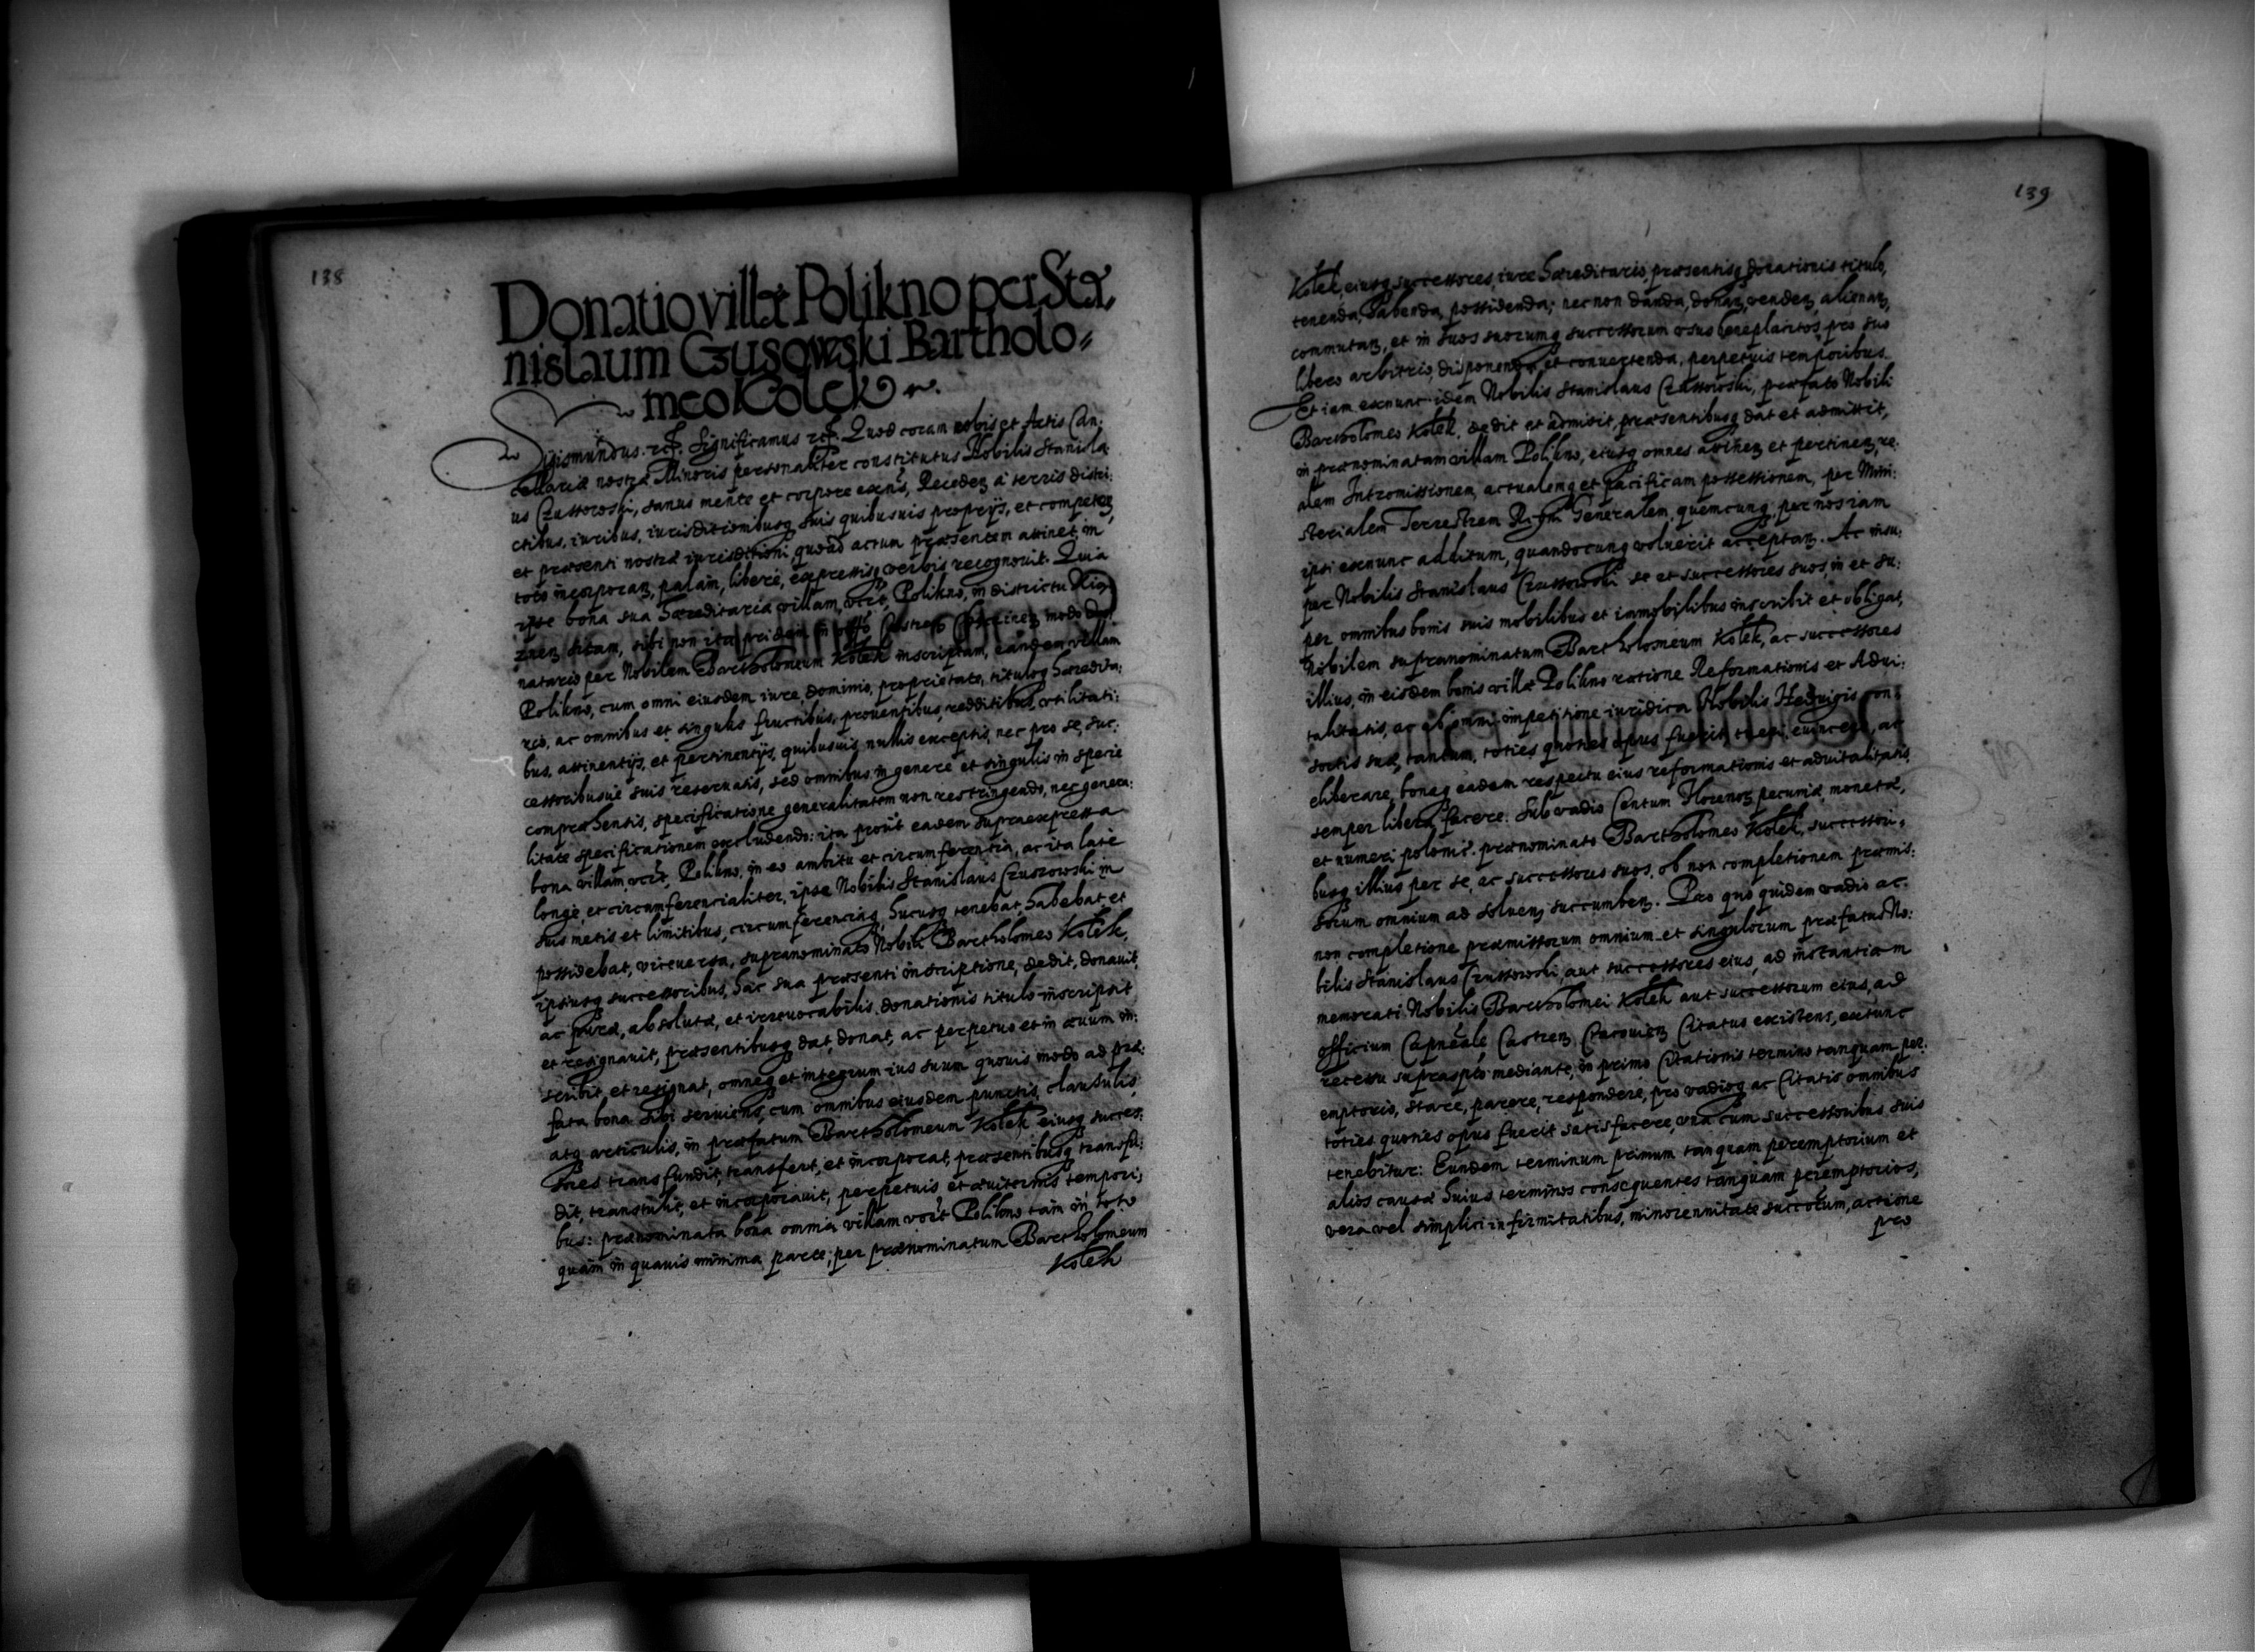 138
Donatio villæ Polikno per Sta,
nislaum Czusowski Bartholo⸗
meo Kolek
Sigismundus. etc. Significamus etc. Quod coram nobis et Actis Can:
cellariæ nostræ Minoris personaliter constitutus Nobilis Stanisla:
us Czussowski, sanus mente et corpore exens, Recedeꝫ à terris distri:
ctibus, iuribus, iurisditionibusqꝫ suis quibusuis proprijs, et competeꝫ,
et præsenti nostræ iurisditioni, quoad actum præsentem attinet, in
toto incorporaꝫ, palam, liberè, expressisqꝫ verbis recognouit. Quia
ipse bona sua hæreditaria villam, vczt, Polikno, in districtu
sitam, sibi non ita pridem in modo
natario per Nobilem Bartholomeum Kolek inscriptam, eandem villam
Polikno, cum omni eiusdem iure, dominio, proprietate, tituloqꝫ hæredita:
rio, ac omnibus et singulis fructibus, prouentibus, redditibus, vtilitati:
bus, attinentijs, et pertinentijs, quibusuis, nullis exceptis, nec pro se, suc:
cessoribusue suis reseruatis, sed omnibus in genere et singulis in specie
compræhensis, specificatione generalitatem non restringendo, nec genera:
litate specificationem excludendo: ita prout eadem supraexpressa
bona villam, vczt, Polikno, in eo ambitu et circumferentia, ac ita latè
longè, et circumferencialiter, ipse Nobilis Stanislaus Czuszowski in
suis metis et limitibus, circumferencijsqꝫ hucusqꝫ tenebat, habebat, et
possidebat, viceuersa, supranominato Nobili Bartholomeo Kolek,
ipsiusqꝫ successoribus, hac sua præsenti inscriptione, dedit, donauit,
ac puræ, absolutæ, et irreuocabilis donationis titulo inscripsit
et resignauit, præsentibusqꝫ dat, donat, ac perpetuo et in æuum in:
scribit, et resignat, omneqꝫ et integrum ius suum quouis modo ad præ:
fata bona sibi seruiens, cum omnibus eiusdem punctis, clausulis,
atqꝫ articulis, in præfatum Bartholomeum Kolek eiusqꝫ succes:
sores transfundit, transfert, et incorporat, præsentibusqꝫ transfu:
dit, transtulit, et incorporauit, perpetuis et æuiternis tempori,
bus: prænominata bona omnia villam vczt Polikno tam in toto
quam in quauis minima parte, per prænominatum Bartholomeum
Kolek
139
Kolek, eiusqꝫ successores, iure hæreditario, præsentisqꝫ donationis titulo,
tenenda, habenda, possidenda; nec non danda, donaꝫ, vendeꝫ, alienaꝫ,
commutaꝫ, et in suos suorumqꝫ successorum vsus beneplacitos, pro suo
libero arbitrio, disponenda, et conuertenda, perpetuis temporibus.
Et iam exnunc idem Nobilis Stanislaus Czussowski, præfato Nobili
Bartholomeo Kolek, dedit et admisit, præsentibusqꝫ dat et admittit,
in prænominatam villam Polikno, eiusqꝫ omnes attineꝫ et pertineꝫ, re:
alem Intromissionem, actualemqꝫ et pacificam possessionem, per Mini:
sterialem Terrestrem Regni Generalem, quemcunqꝫ, per nos iam
ipsi exnunc additum, quandocunqꝫ voluerit acceptaꝫ. Ac insu:
per Nobilis Stanislaus Czussowski se et successores suos, in et su:
per omnibus bonis suis mobilibus et immobilibus inscribit et obligat,
Nobilem supranominatum Bartholomeum Kolek, ac successores
illius, in eisdem bonis villæ Polikno ratione Reformationis et Adui:
talitatis, ac ab omni impetitione iuridica Nobilis Heduigis con:
sortis suæ, tantum, toties quoties opus fuerit, tueri, euincere, ac
eliberare, bonaqꝫ eadem respectu eius reformationis et aduitalitatis
semper libera facere. Sub vadio Centum Florenoꝫ pecuniæ, monetæ,
et numeri polonic. prænominato Bartholomeo Kolek, successori:
busqꝫ illius per se, ac successores suos, ob non completionem præmis:
sorum omnium ad solueꝫ succumbeꝫ. Pro quo quidem vadio ac
non completione præmissorum omnium et singulorum præfatus No:
bilis Stanislaus Czussowski, aut successores eius, ad instantiam
memorati Nobilis Bartholomei Kolek aut successorum eius, ad
officium Capneale Castreꝫ Citatus existens, extunc
recessu suprascpto mediante, in primo Citationis termino tanquam per:
emptorio, stare, parere, respondere, pro vadioqꝫ ac Citatis omnibus
toties quoties opus fuerit satisfacere, vna cum successoribus suis
tenebitur: Eundem terminum primum tanquam peremptorium et
alios causæ huius terminos consequentes tanquam peremptorios,
vera vel simplici infirmitatibus, minorennitate succorum, actione
pro